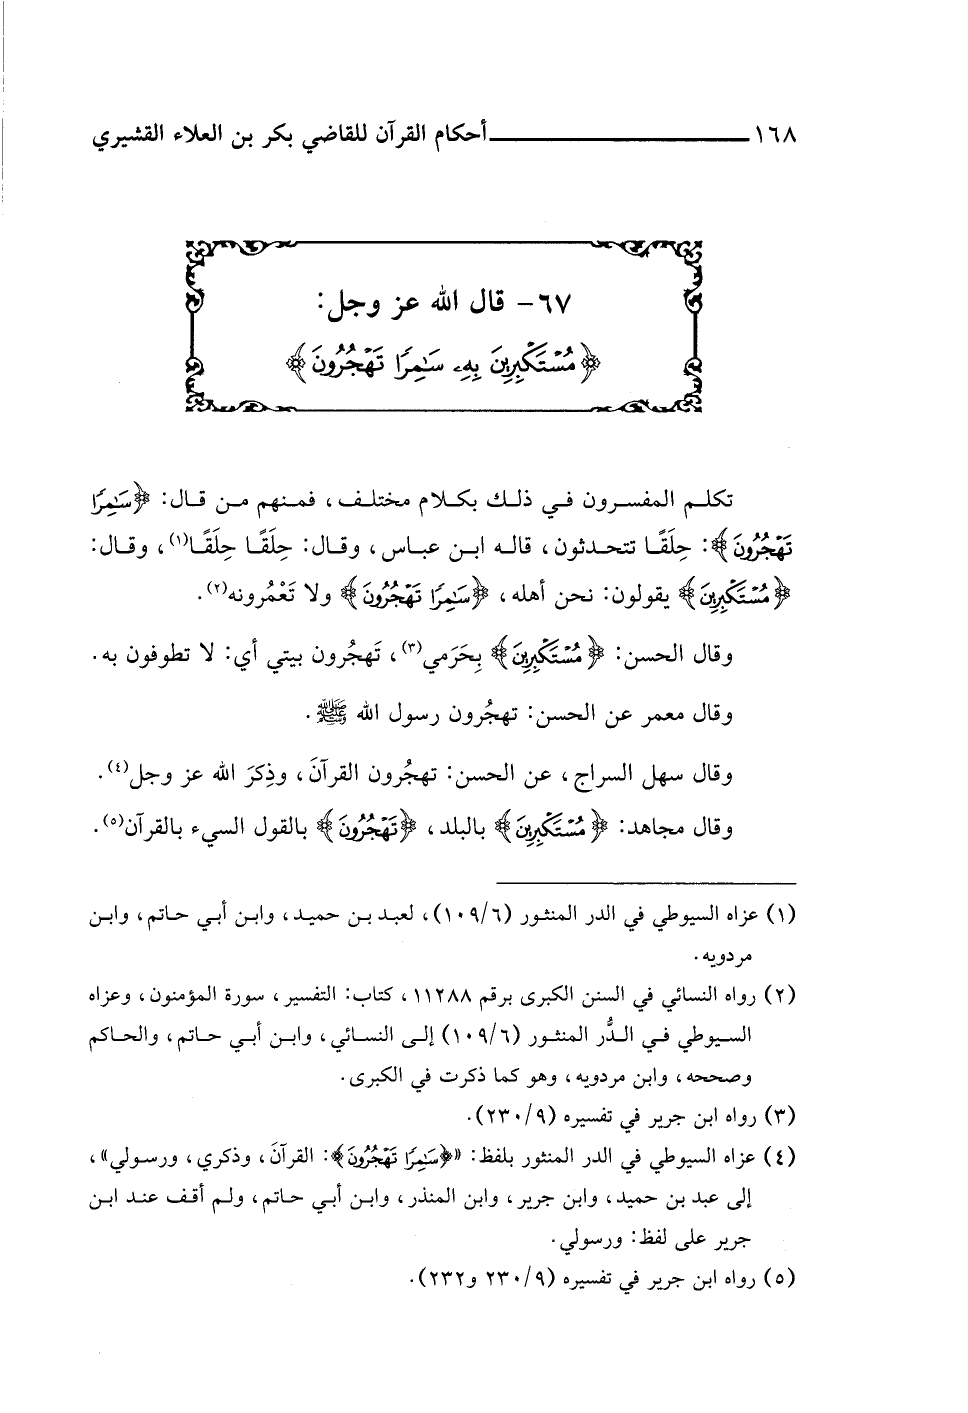 ١٦٨ أحكام القرآن للقاضي بكر بن العلاء القشيري
٦٧- قال الله عز وجل:
﴿مُسْتَكْبِرِينَ بِهِۦ سَٰمِرًا تَهْجُرُونَ﴾
تكلم المفسرون في ذلك بكلام مختلف، فمنهم من قال: ﴿سَٰمِرًا
تَهْجُرُونَ﴾: حِلَقًا تتحدثون، قاله ابن عباس، وقال: حِلَقًا حِلَقًا(١)، وقال:
﴿مُسْتَكْبِرِينَ﴾ يقولون: نحن أهله، ﴿سَٰمِرًا تَهْجُرُونَ﴾ ولا تَعْمُرونه(٢).
وقال الحسن: ﴿مُسْتَكْبِرِينَ﴾ بِحَرَمي(٣)، تَهجُرون بيتي أي: لا تطوفون به.
وقال معمر عن الحسن: تهجُرون رسول الله ﷺ.
وقال سهل السراج، عن الحسن: تهجُرون القرآنَ، وذِكرَ الله عز وجل(٤).
وقال مجاهد: ﴿مُسْتَكْبِرِينَ﴾ بالبلد، ﴿تَهْجُرُونَ﴾ بالقول السيء بالقرآن(٥).
(١) عزاه السيوطي في الدر المنثور (١٠٩/٦)، لعبد بن حميد، وابن أبي حاتم، وابن
مردويه.
(٢) رواه النسائي في السنن الكبرى برقم ١١٢٨٨، كتاب: التفسير، سورة المؤمنون، وعزاه
السيوطي في الدُّر المنثور (١٠٩/٦) إلى النسائي، وابن أبي حاتم، والحاكم
وصححه، وابن مردويه، وهو كما ذكرت في الكبرى.
(٣) رواه ابن جرير في تفسيره (٢٣٠/٩).
(٤) عزاه السيوطي في الدر المنثور بلفظ: «﴿سَٰمِرًا تَهْجُرُونَ﴾: القرآنَ، وذكري، ورسولي»،
إلى عبد بن حميد، وابن جرير، وابن المنذر، وابن أبي حاتم، ولم أقف عند ابن
جرير على لفظ: ورسولي.
(٥) رواه ابن جرير في تفسيره (٢٣٠/٩ و٢٣٢).